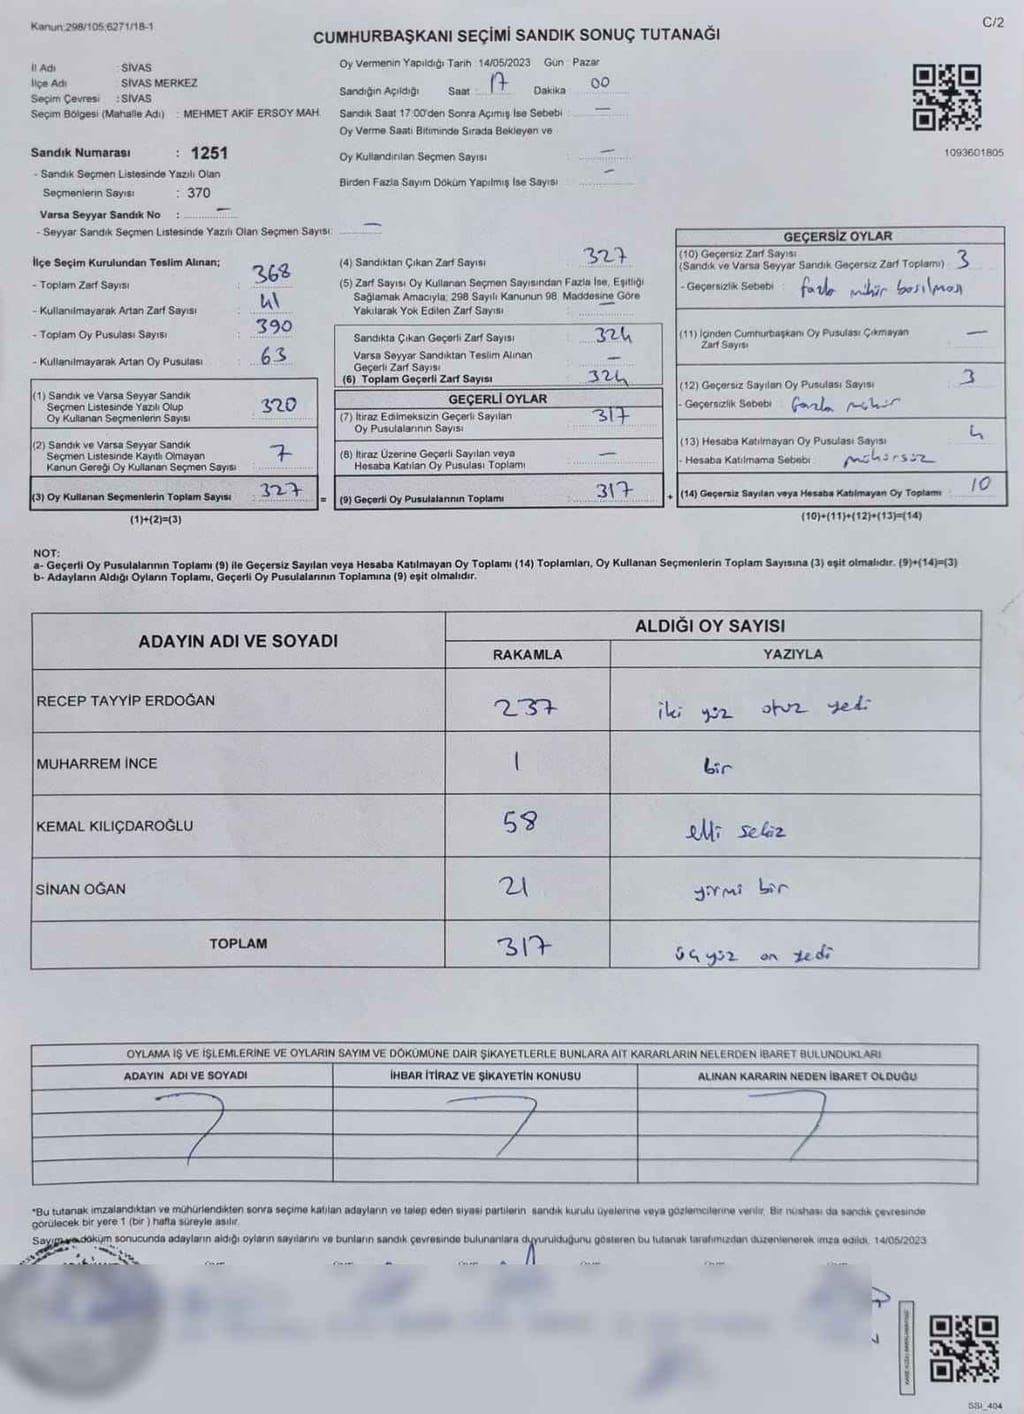 Kanun:298/105;6271/18-1
C/2
CUMHURBAŞKANI SEÇİMİ SANDIK SONUÇ TUTANAĞI
İl Adı : SİVAS
İlçe Adı : SİVAS MERKEZ
Seçim Çevresi : SİVAS
Seçim Bölgesi (Mahalle Adı) : MEHMET AKİF ERSOY MAH.
Sandık Numarası : 1251
- Sandık Seçmen Listesinde Yazılı Olan
Seçmenlerin Sayısı : 370
Varsa Seyyar Sandık No : —
- Seyyar Sandık Seçmen Listesinde Yazılı Olan Seçmen Sayısı: —
Oy Vermenin Yapıldığı Tarih : 14/05/2023 Gün : Pazar
Sandığın Açıldığı Saat : 17 Dakika 00
Sandık Saat 17:00'den Sonra Açımış İse Sebebi : —
Oy Verme Saati Bitiminde Sırada Bekleyen ve
Oy Kullandırılan Seçmen Sayısı : —
Birden Fazla Sayım Döküm Yapılmış İse Sayısı : —
1093601805
İlçe Seçim Kurulundan Teslim Alınan;
- Toplam Zarf Sayısı : 368
- Kullanılmayarak Artan Zarf Sayısı : 41
- Toplam Oy Pusulası Sayısı : 390
- Kullanılmayarak Artan Oy Pusulası : 63
(1) Sandık ve Varsa Seyyar Sandık
Seçmen Listesinde Yazılı Olup
Oy Kullanan Seçmenlerin Sayısı : 320
(2) Sandık ve Varsa Seyyar Sandık
Seçmen Listesinde Kayıtlı Olmayan
Kanun Gereği Oy Kullanan Seçmen Sayısı : 7
(3) Oy Kullanan Seçmenlerin Toplam Sayısı : 327 =
(1)+(2)=(3)
(4) Sandıktan Çıkan Zarf Sayısı : 327
(5) Zarf Sayısı Oy Kullanan Seçmen Sayısından Fazla İse, Eşitliği
Sağlamak Amacıyla; 298 Sayılı Kanunun 98. Maddesine Göre
Yakılarak Yok Edilen Zarf Sayısı : —
Sandıkta Çıkan Geçerli Zarf Sayısı : 324
Varsa Seyyar Sandıktan Teslim Alınan
Geçerli Zarf Sayısı : —
(6) Toplam Geçerli Zarf Sayısı : 324
GEÇERLİ OYLAR
(7) İtiraz Edilmeksizin Geçerli Sayılan
Oy Pusulalarının Sayısı : 317
(8) İtiraz Üzerine Geçerli Sayılan veya
Hesaba Katılan Oy Pusulası Toplamı : —
(9) Geçerli Oy Pusulalarının Toplamı : 317 +
GEÇERSİZ OYLAR
(10) Geçersiz Zarf Sayısı
(Sandık ve Varsa Seyyar Sandık Geçersiz Zarf Toplamı) : 3
- Geçersizlik Sebebi : fazla mühür basılması
(11) İçinden Cumhurbaşkanı Oy Pusulası Çıkmayan
Zarf Sayısı —
(12) Geçersiz Sayılan Oy Pusulası Sayısı : 3
- Geçersizlik Sebebi : fazla mühür
(13) Hesaba Katılmayan Oy Pusulası Sayısı : 4
- Hesaba Katılmama Sebebi : mühürsüz
(14) Geçersiz Sayılan veya Hesaba Katılmayan Oy Toplamı : 10
(10)+(11)+(12)+(13)=(14)
NOT:
a- Geçerli Oy Pusulalarının Toplamı (9) ile Geçersiz Sayılan veya Hesaba Katılmayan Oy Toplamı (14) Toplamları, Oy Kullanan Seçmenlerin Toplam Sayısına (3) eşit olmalıdır. (9)+(14)=(3)
b- Adayların Aldığı Oyların Toplamı, Geçerli Oy Pusulalarının Toplamına (9) eşit olmalıdır.
ADAYIN ADI VE SOYADI
ALDIĞI OY SAYISI
RAKAMLA YAZIYLA
RECEP TAYYİP ERDOĞAN 237 iki yüz otuz yedi
MUHARREM İNCE 1 bir
KEMAL KILIÇDAROĞLU 58 elli sekiz
SİNAN OĞAN 21 yirmi bir
TOPLAM 317 üç yüz on yedi
OYLAMA İŞ VE İŞLEMLERİNE VE OYLARIN SAYIM VE DÖKÜMÜNE DAİR ŞİKAYETLERLE BUNLARA AİT KARARLARIN NELERDEN İBARET BULUNDUKLARI
ADAYIN ADI VE SOYADI İHBAR İTİRAZ VE ŞİKAYETİN KONUSU ALINAN KARARIN NEDEN İBARET OLDUĞU
*Bu tutanak imzalandıktan ve mühürlendikten sonra seçime katılan adayların ve talep eden siyasi partilerin sandık kurulu üyelerine veya gözlemcilerine verilir. Bir nüshası da sandık çevresinde
görülecek bir yere 1 (bir) hafta süreyle asılır.
Sayım ve döküm sonucunda adayların aldığı oyların sayılarını ve bunların sandık çevresinde bulunanlara duyurulduğunu gösteren bu tutanak tarafımızdan düzenlenerek imza edildi. 14/05/2023
SSI_404